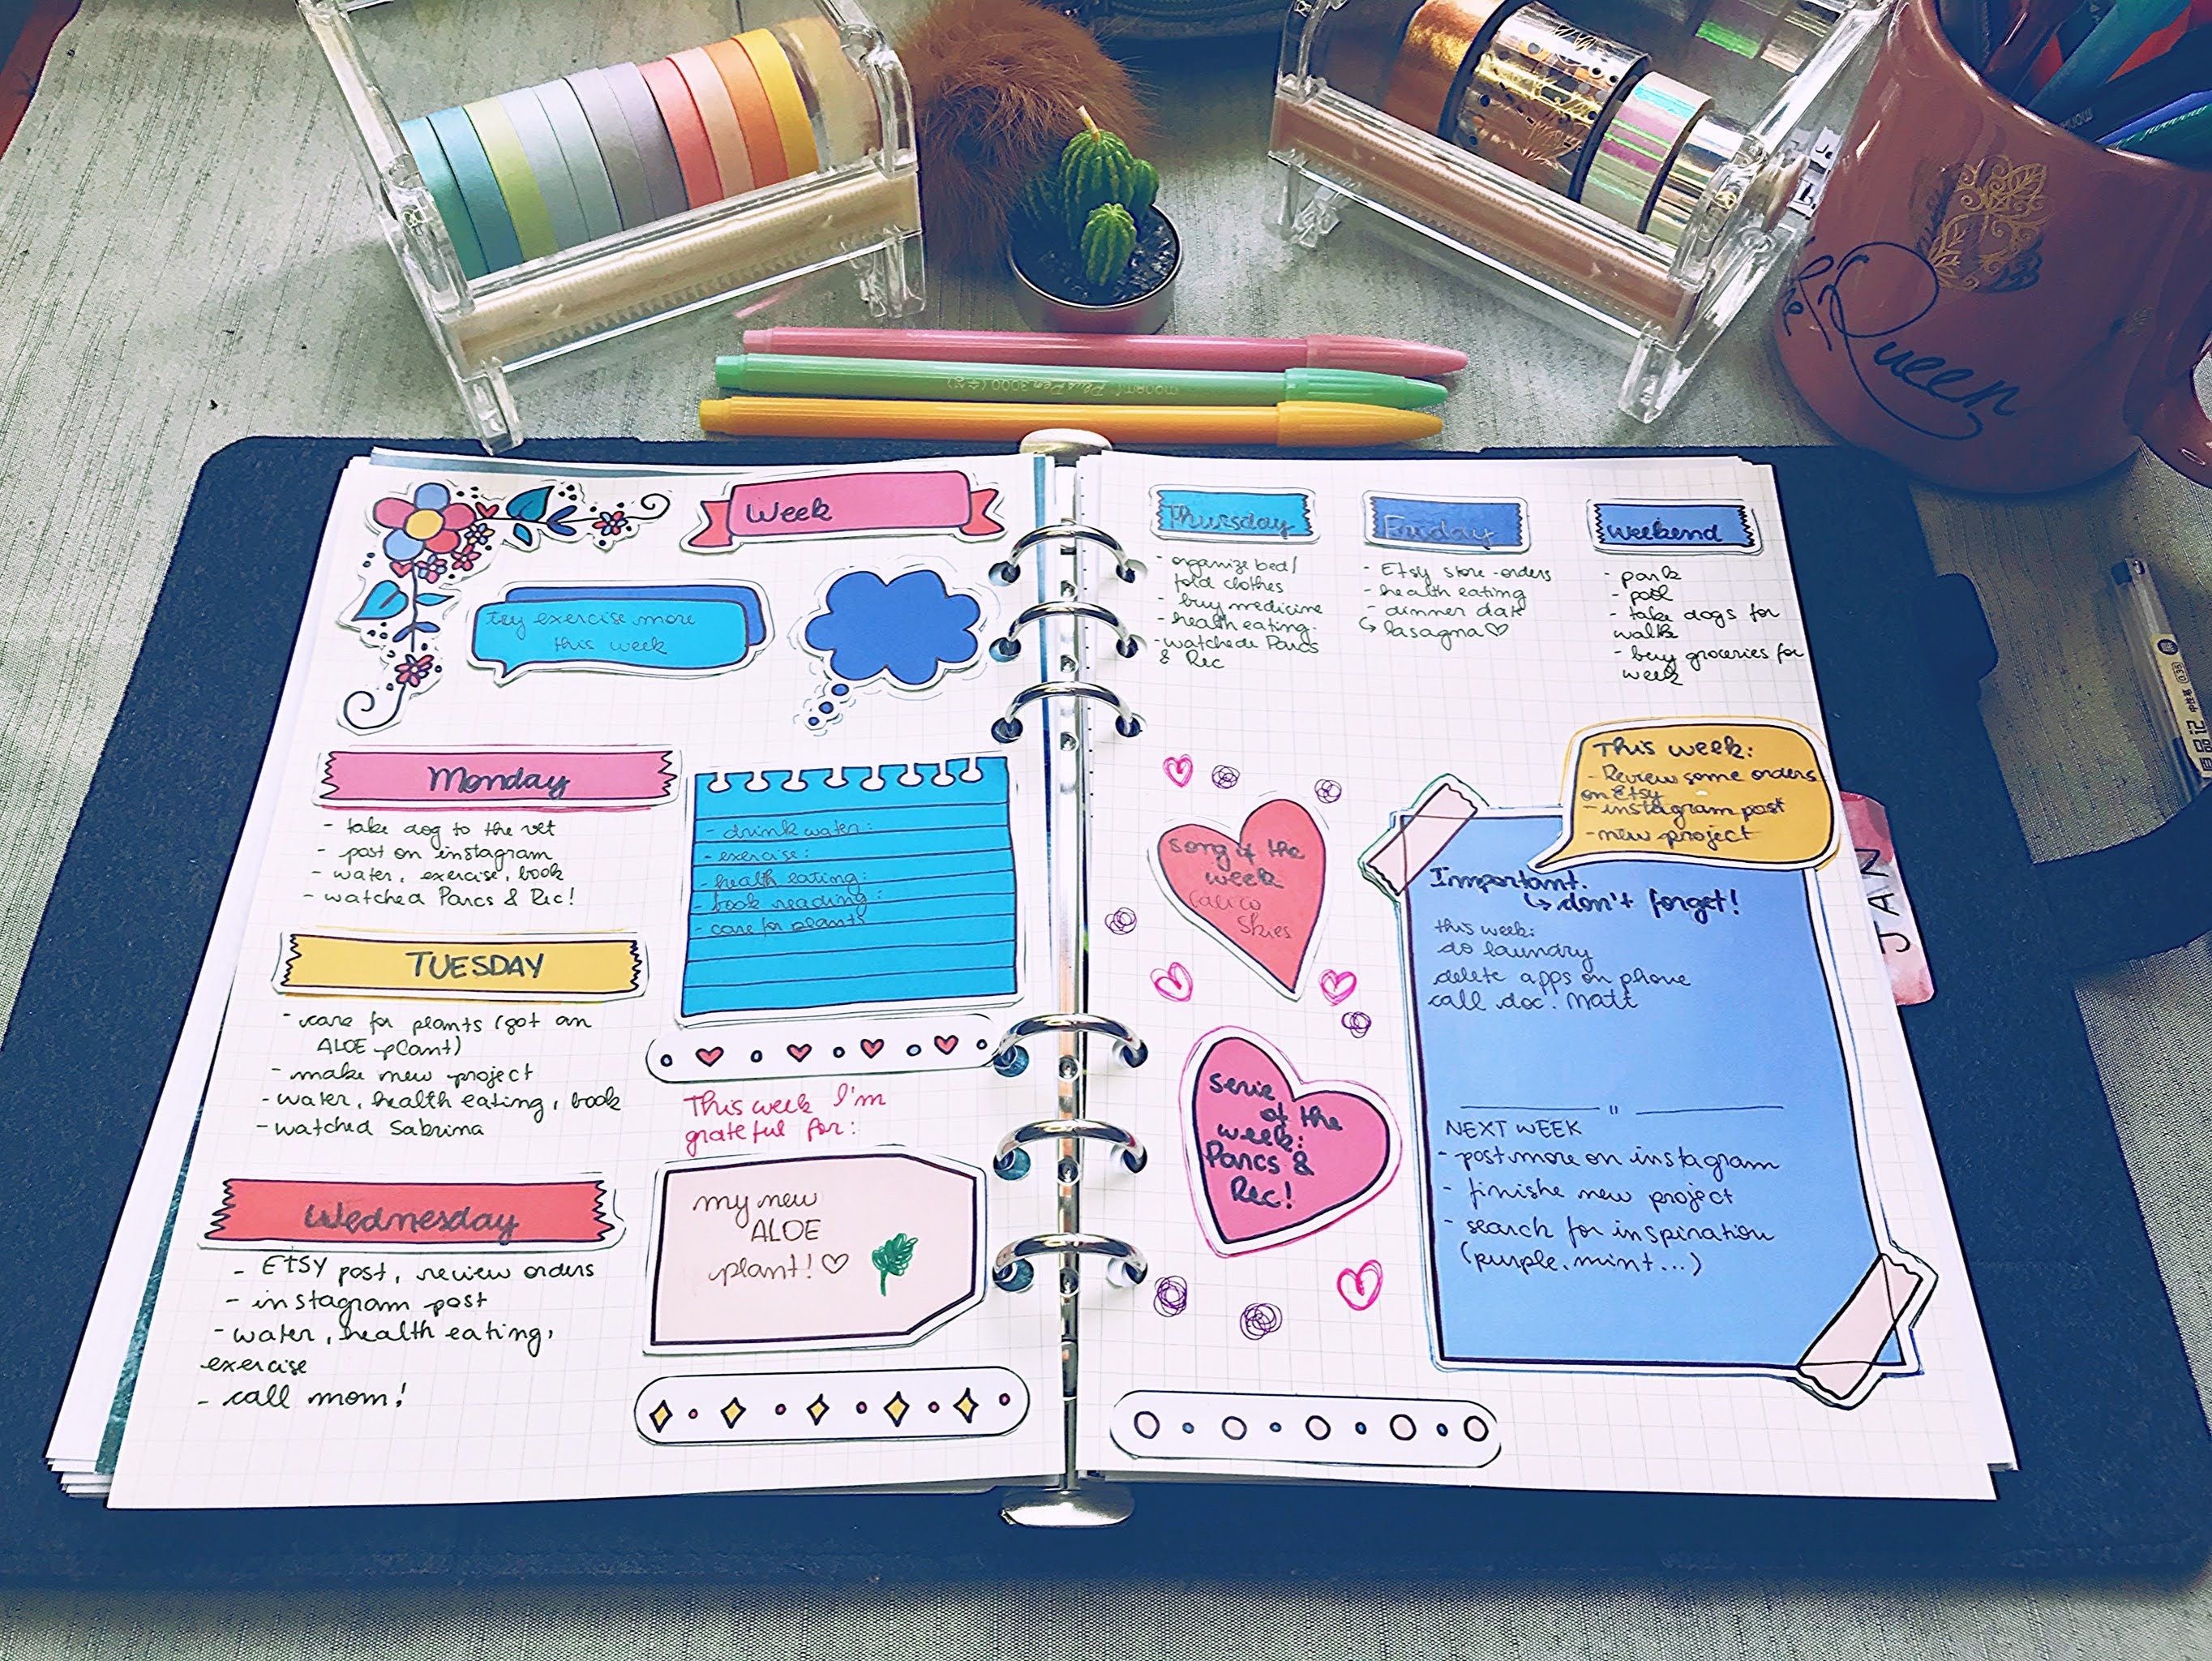 Week
try exercise more
this week
Monday
- take dog to the vet
- post on instagram
- water, exercise, book
- watched Parcs & Rec!
TUESDAY
- care for plants (got an
ALOE plant)
- make new project
- water, health eating, book
- watched Sabrina
Wednesday
- ETSY post, review orders
- instagram post
- water, health eating,
exercise
- call mom!
- drink water:
- exercise:
- health eating:
- book reading:
- care for plants
This week I'm
grateful for:
my new
ALOE
plant!
Thursday
- organize bed/
fold clothes
- buy medicine
- health eating.
- watchede Parcs
& Rec
Friday
- Etsy store-orders
- health eating
- dinner date
↳ lasagna♡
Weekend
- park
- pool
- take dogs for
walk
- buy groceries for
week
song of the
week
Calico
Skies
serie
of the
week:
Parcs &
Rec!
This week:
- Review some orders
on Etsy
- instagram post
- new project
Important.
↳ don't forget!
this week:
do laundry
delete apps on phone
call doc. Matt
NEXT WEEK
- post more on instagram
- finishe new project
- search for inspiration
(purple, mint...)
JAN
Queen
monami Plus Pen 3000
0.35